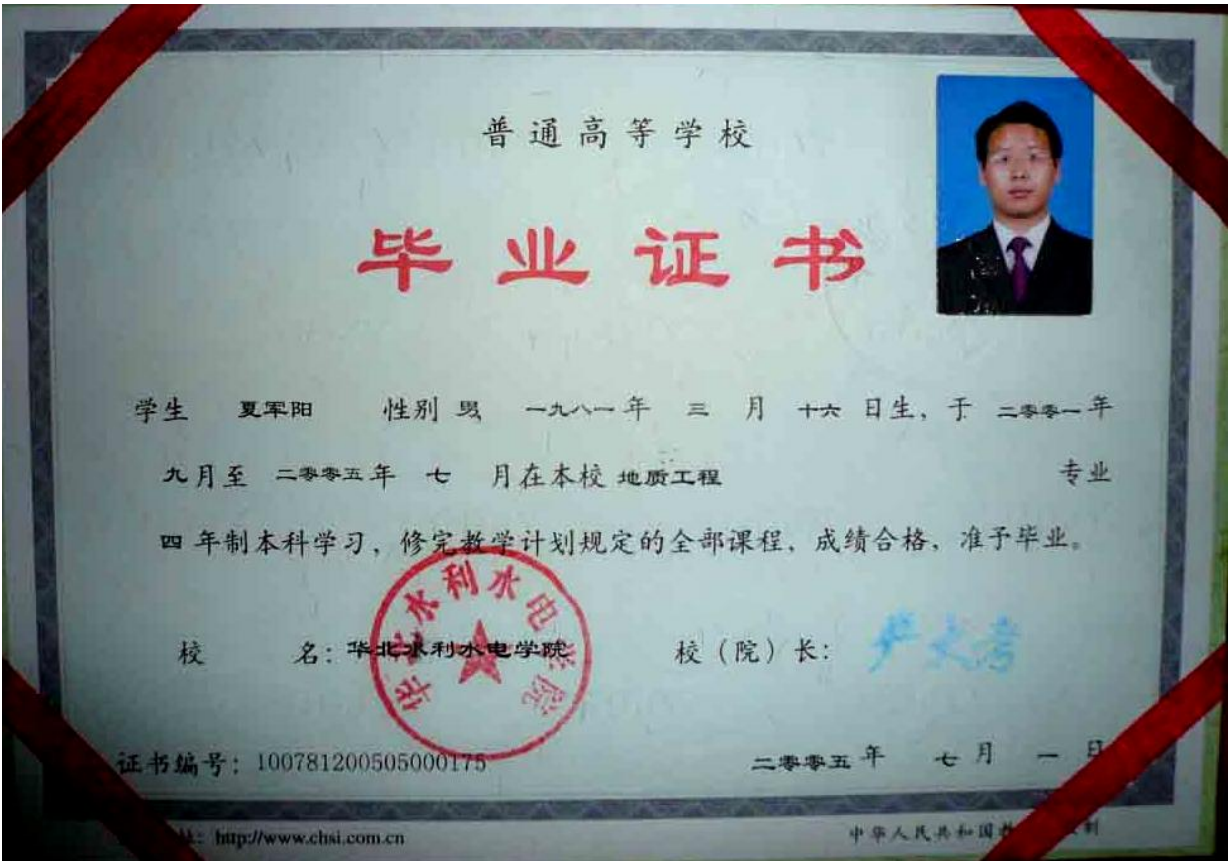 普通高等学校
毕业证书
学生 夏军阳 性别 男 一九八一年 三 月 十六 日生，于 二零零一年
九月至 二零零五年 七 月在本校 地质工程 专业
四 年制本科学习，修完教学计划规定的全部课程，成绩合格，准予毕业。
华北水利水电学院
校 名：华北水利水电学院 校（院）长：严大考
证书编号：100781200505000175 二零零五年 七月 一 日
址：http://www.chsi.com.cn 中华人民共和国教 制